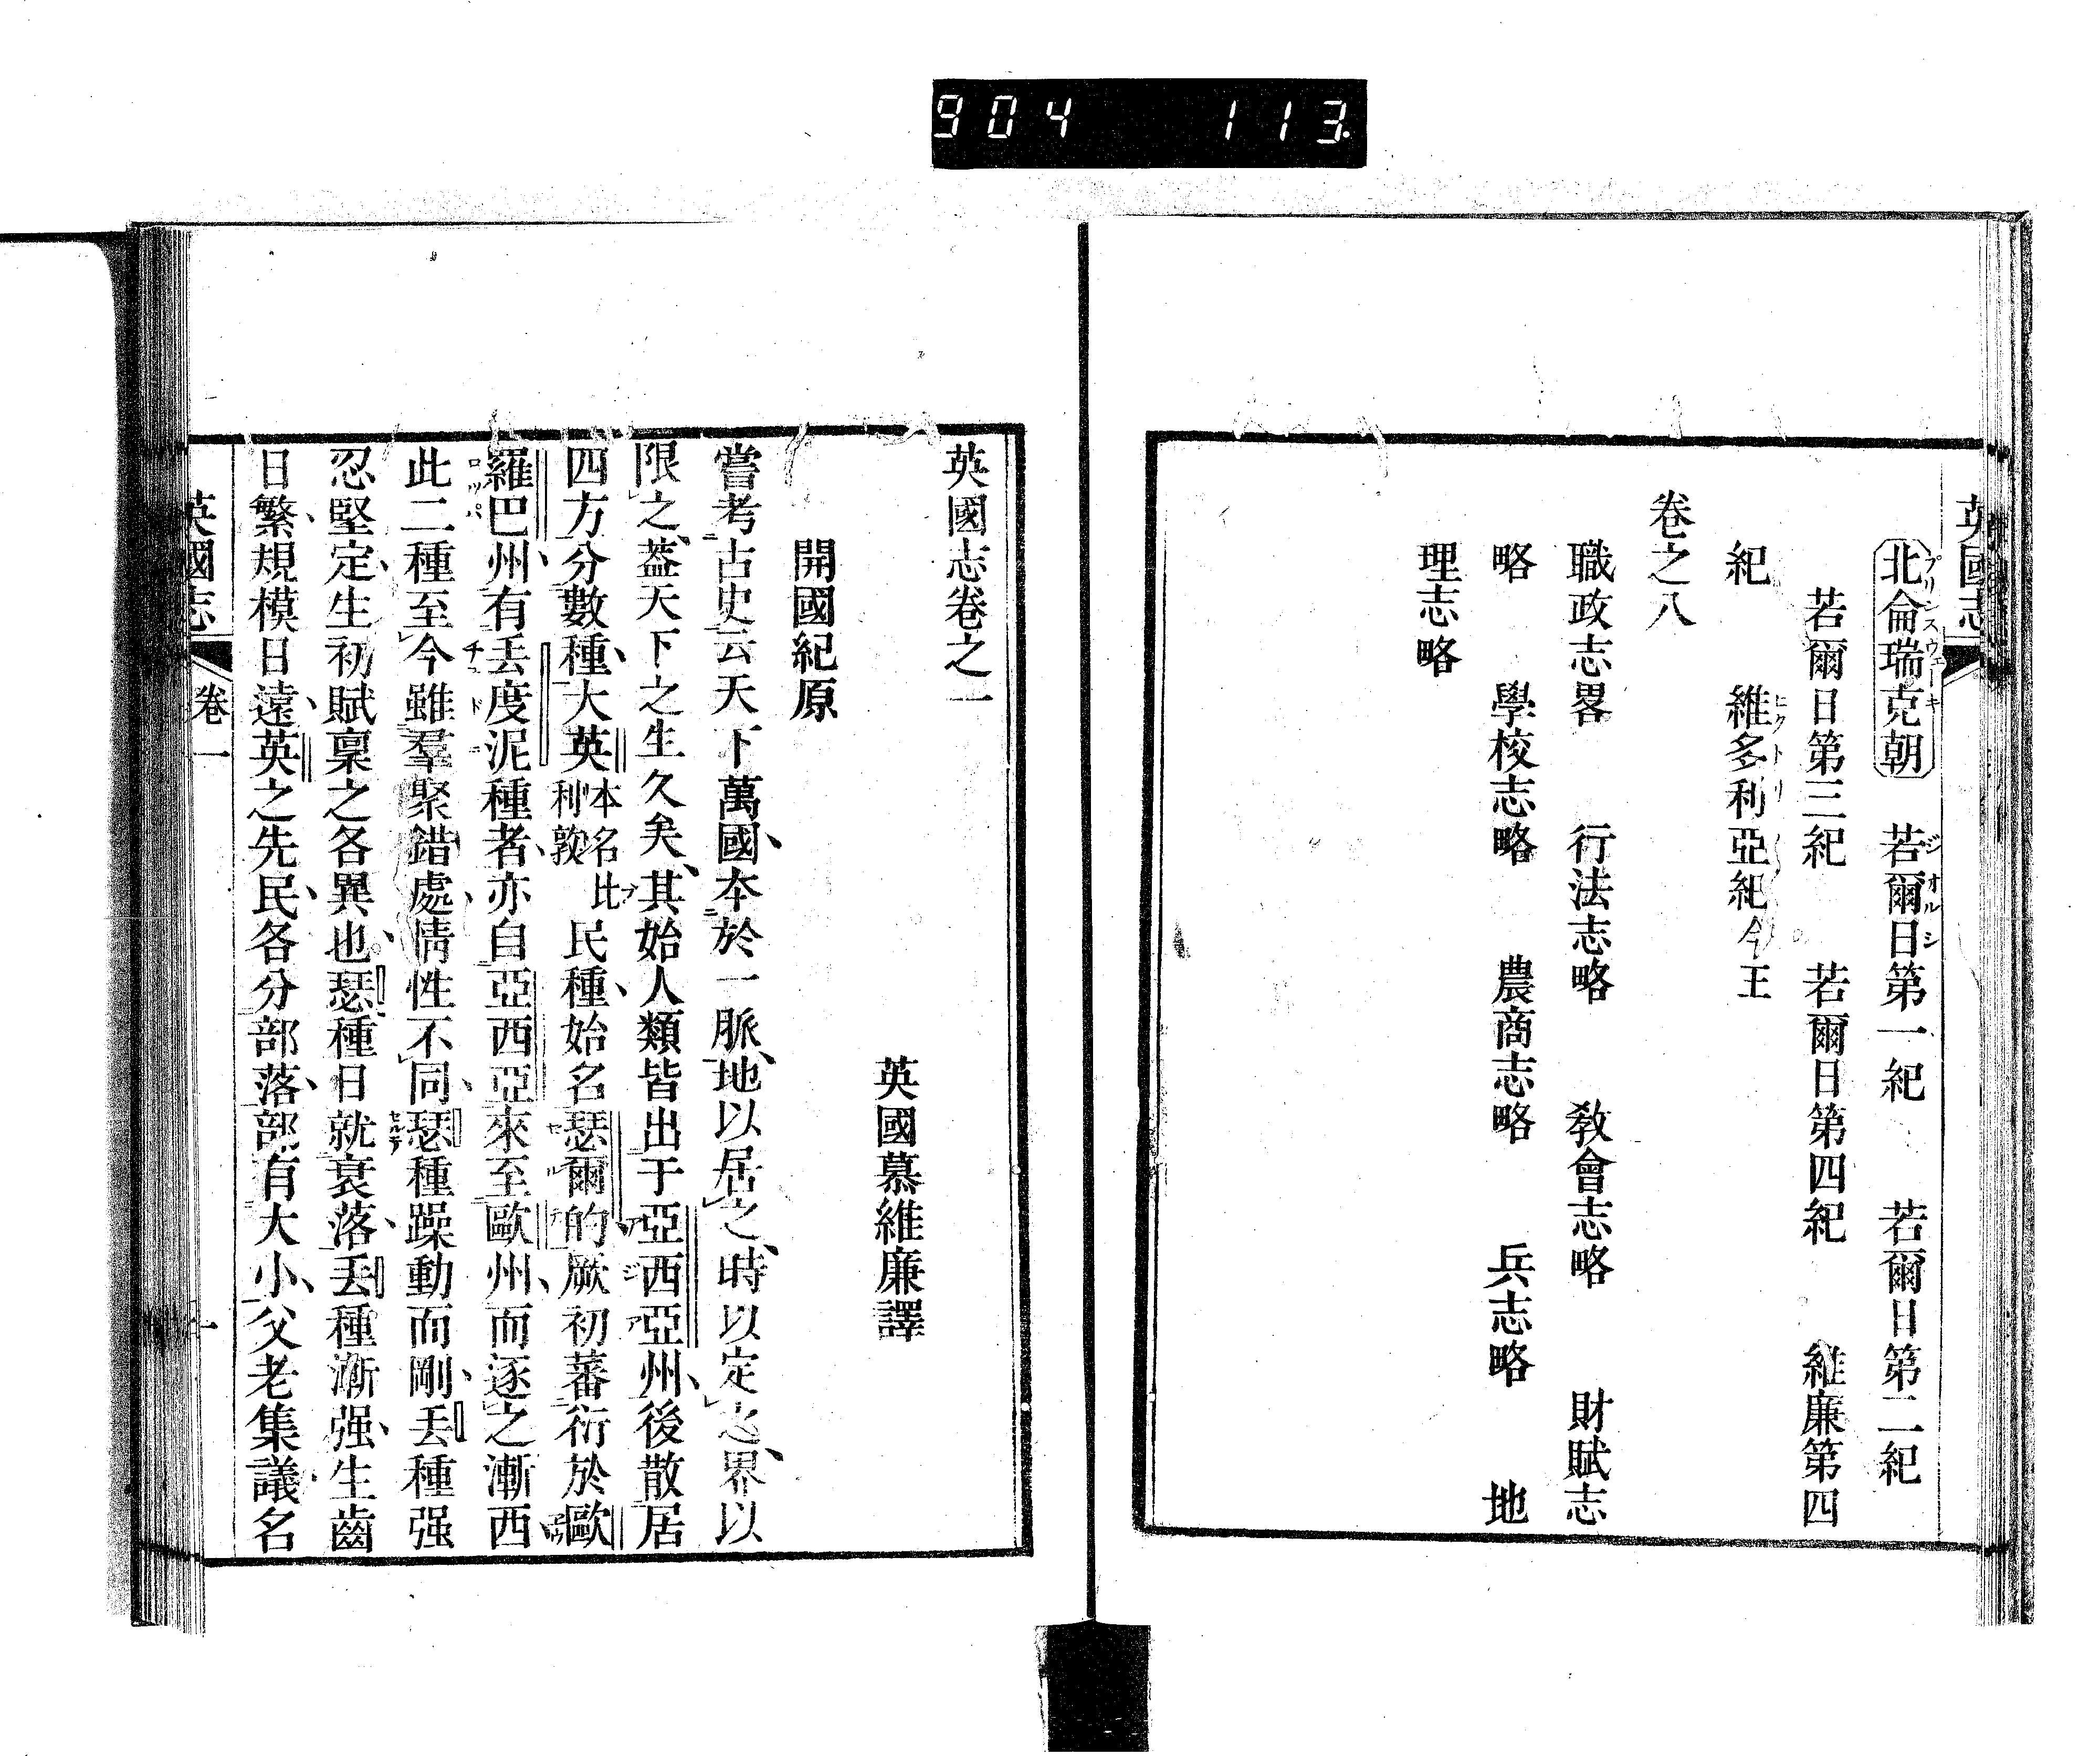 904 113.
英國志
北倫瑞克朝 若爾日第一紀 若爾日第二紀
若爾日第三紀 若爾日第四紀 維廉第四
紀 維多利亞紀今王
卷之八
職政志畧 行法志略 敎會志略 財賦志
略 學校志略 農商志略 兵志略 地
理志略
英國志卷之一
英國慕維廉譯
開國紀原
嘗考古史云天下萬國本於一脈地以居之時以定之界以
限之蓋天下之生久矣其始人類皆出于亞西亞州後散居
四方分數種大英本名比利敦民種始名瑟爾的厥初蕃衍於歐
羅巴州有丟度泥種者亦自亞西亞來至歐州而逐之漸西
此二種至今雖羣聚錯處情性不同瑟種躁動而剛丟種强
忍堅定生初賦稟之各異也瑟種日就衰落丟種漸强生齒
日繁規模日遠英之先民各分部落部有大小父老集議名
英國志 卷一 一